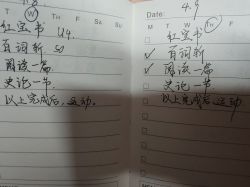 W Th F Sa Su
红宝书 U4.
百词斩 50
阅读一篇
史论一节
以上完成后,运动.
Date: 4.9
M T W Th F S
红宝书
百词斩
阅读一篇
史论一节
以上完成后,运动.